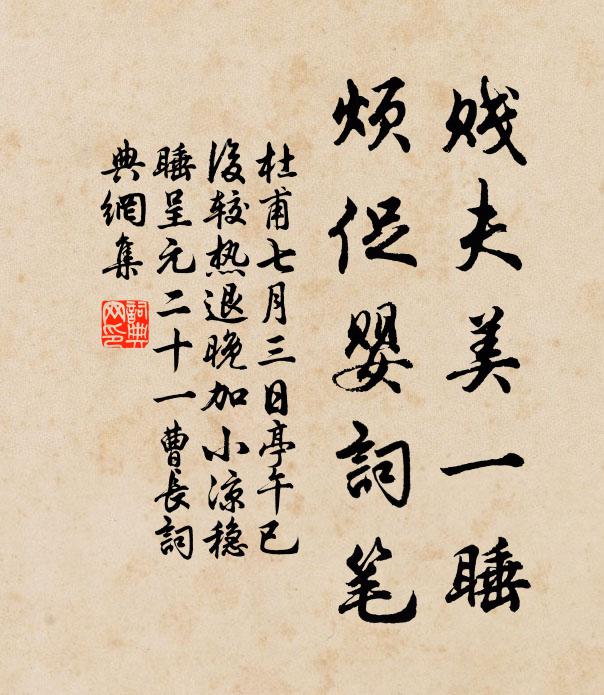 贱夫美一睡
烦促婴詞笔
杜甫七月三日亭午已
後较热退晚加小凉稳
睡呈元二十一曹長詞
典網集
詞典
网印